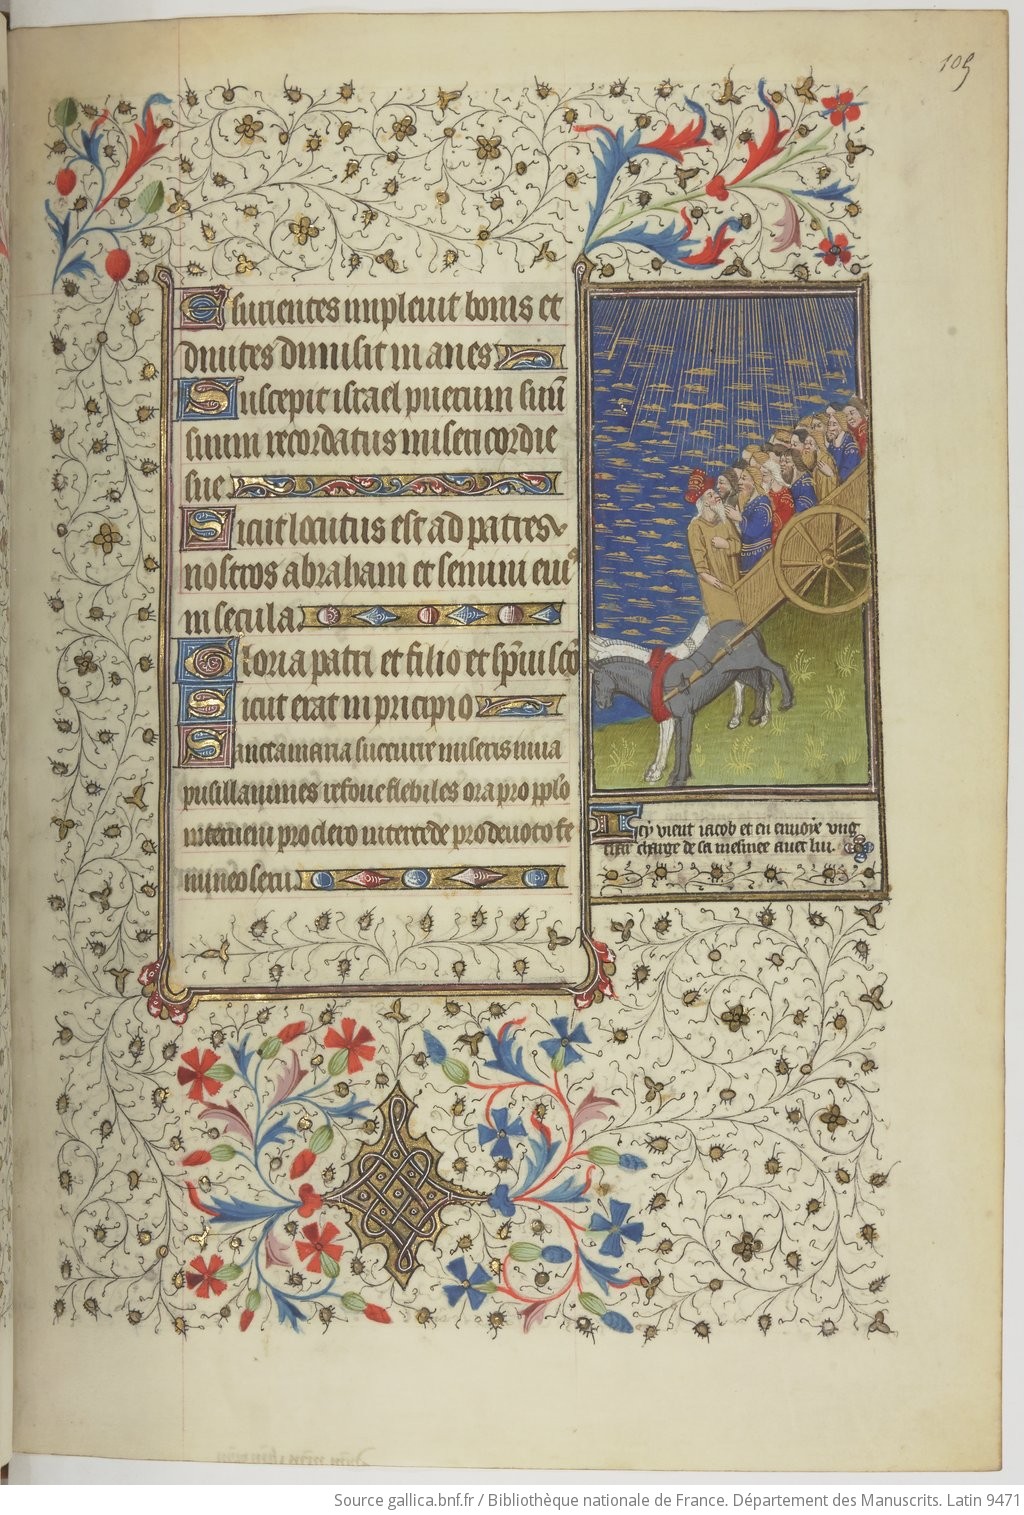 105
Esurientes impleuit bonis et
diuites dimisit inanes
Suscepit israel puerum suū
suum recordatus misericordie
sue
Sicut locutus est ad patres
nostros abraham et semini eiꝰ
in secula
Gloria patri et filio et spūi scō
Sicut erat in pricipio
Sancta maria succurre miseris iuua
pusillanimes refoue flebiles ora pro pplo
interueni pro clero intercede pro deuoto fe
mineo sexu
Icy vient iacob et en enuoye vng
char charge de sa mesniee auec lui.
Source gallica.bnf.fr / Bibliothèque nationale de France. Département des Manuscrits. Latin 9471